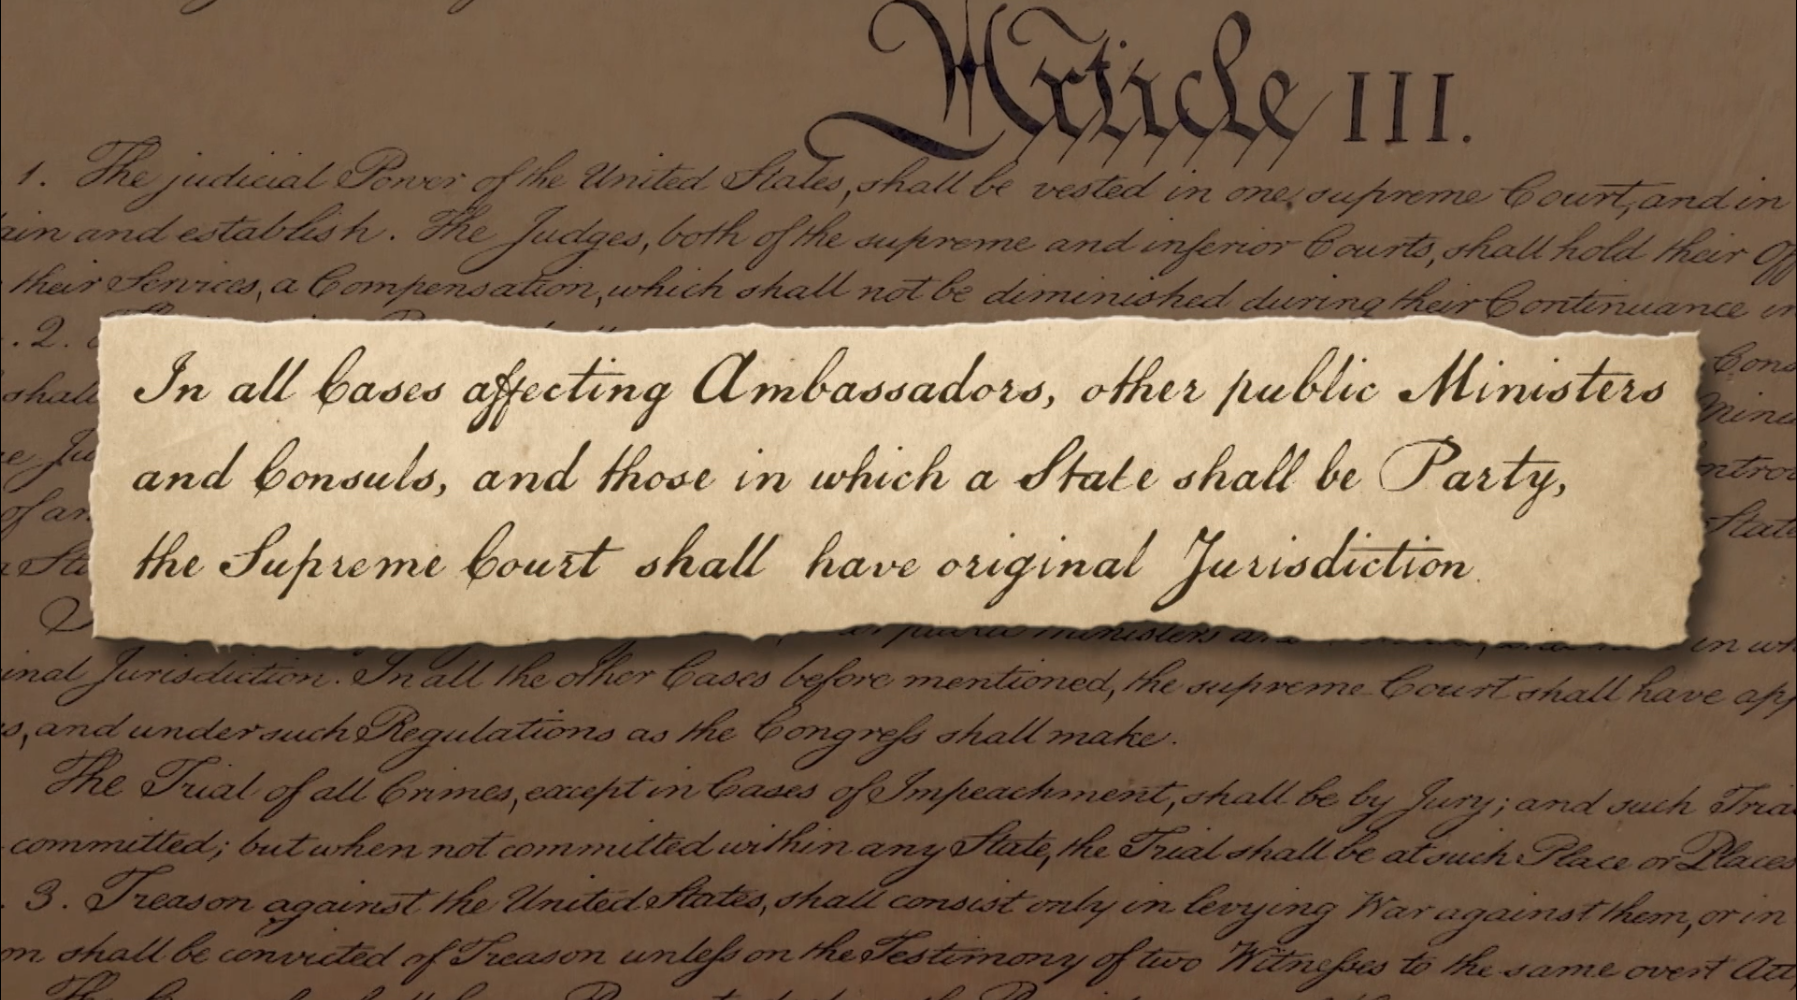 Article III.
1. The judicial Power of the United States, shall be vested in one supreme Court, and in
ain and establish. The Judges, both of the supreme and inferior Courts, shall hold their Off
their Services, a Compensation, which shall not be diminished during their Continuance in
. 2.
Cons
shall
In all Cases affecting Ambassadors, other public Ministers
and Consuls, and those in which a State shall be Party,
the Supreme Court shall have original Jurisdiction
State
public ministers in wh
inal Jurisdiction. In all the other Cases before mentioned, the supreme Court shall have app
s, and under such Regulations as the Congress shall make.
The Trial of all Crimes, except in Cases of Impeachment, shall be by Jury; and such Tria
committed; but when not committed within any State, the Trial shall be at such Place or Places
. 3. Treason against the United States, shall consist only in levying War against them, or in
on shall be convicted of Treason unless on the Testimony of two Witnesses to the same overt Act,